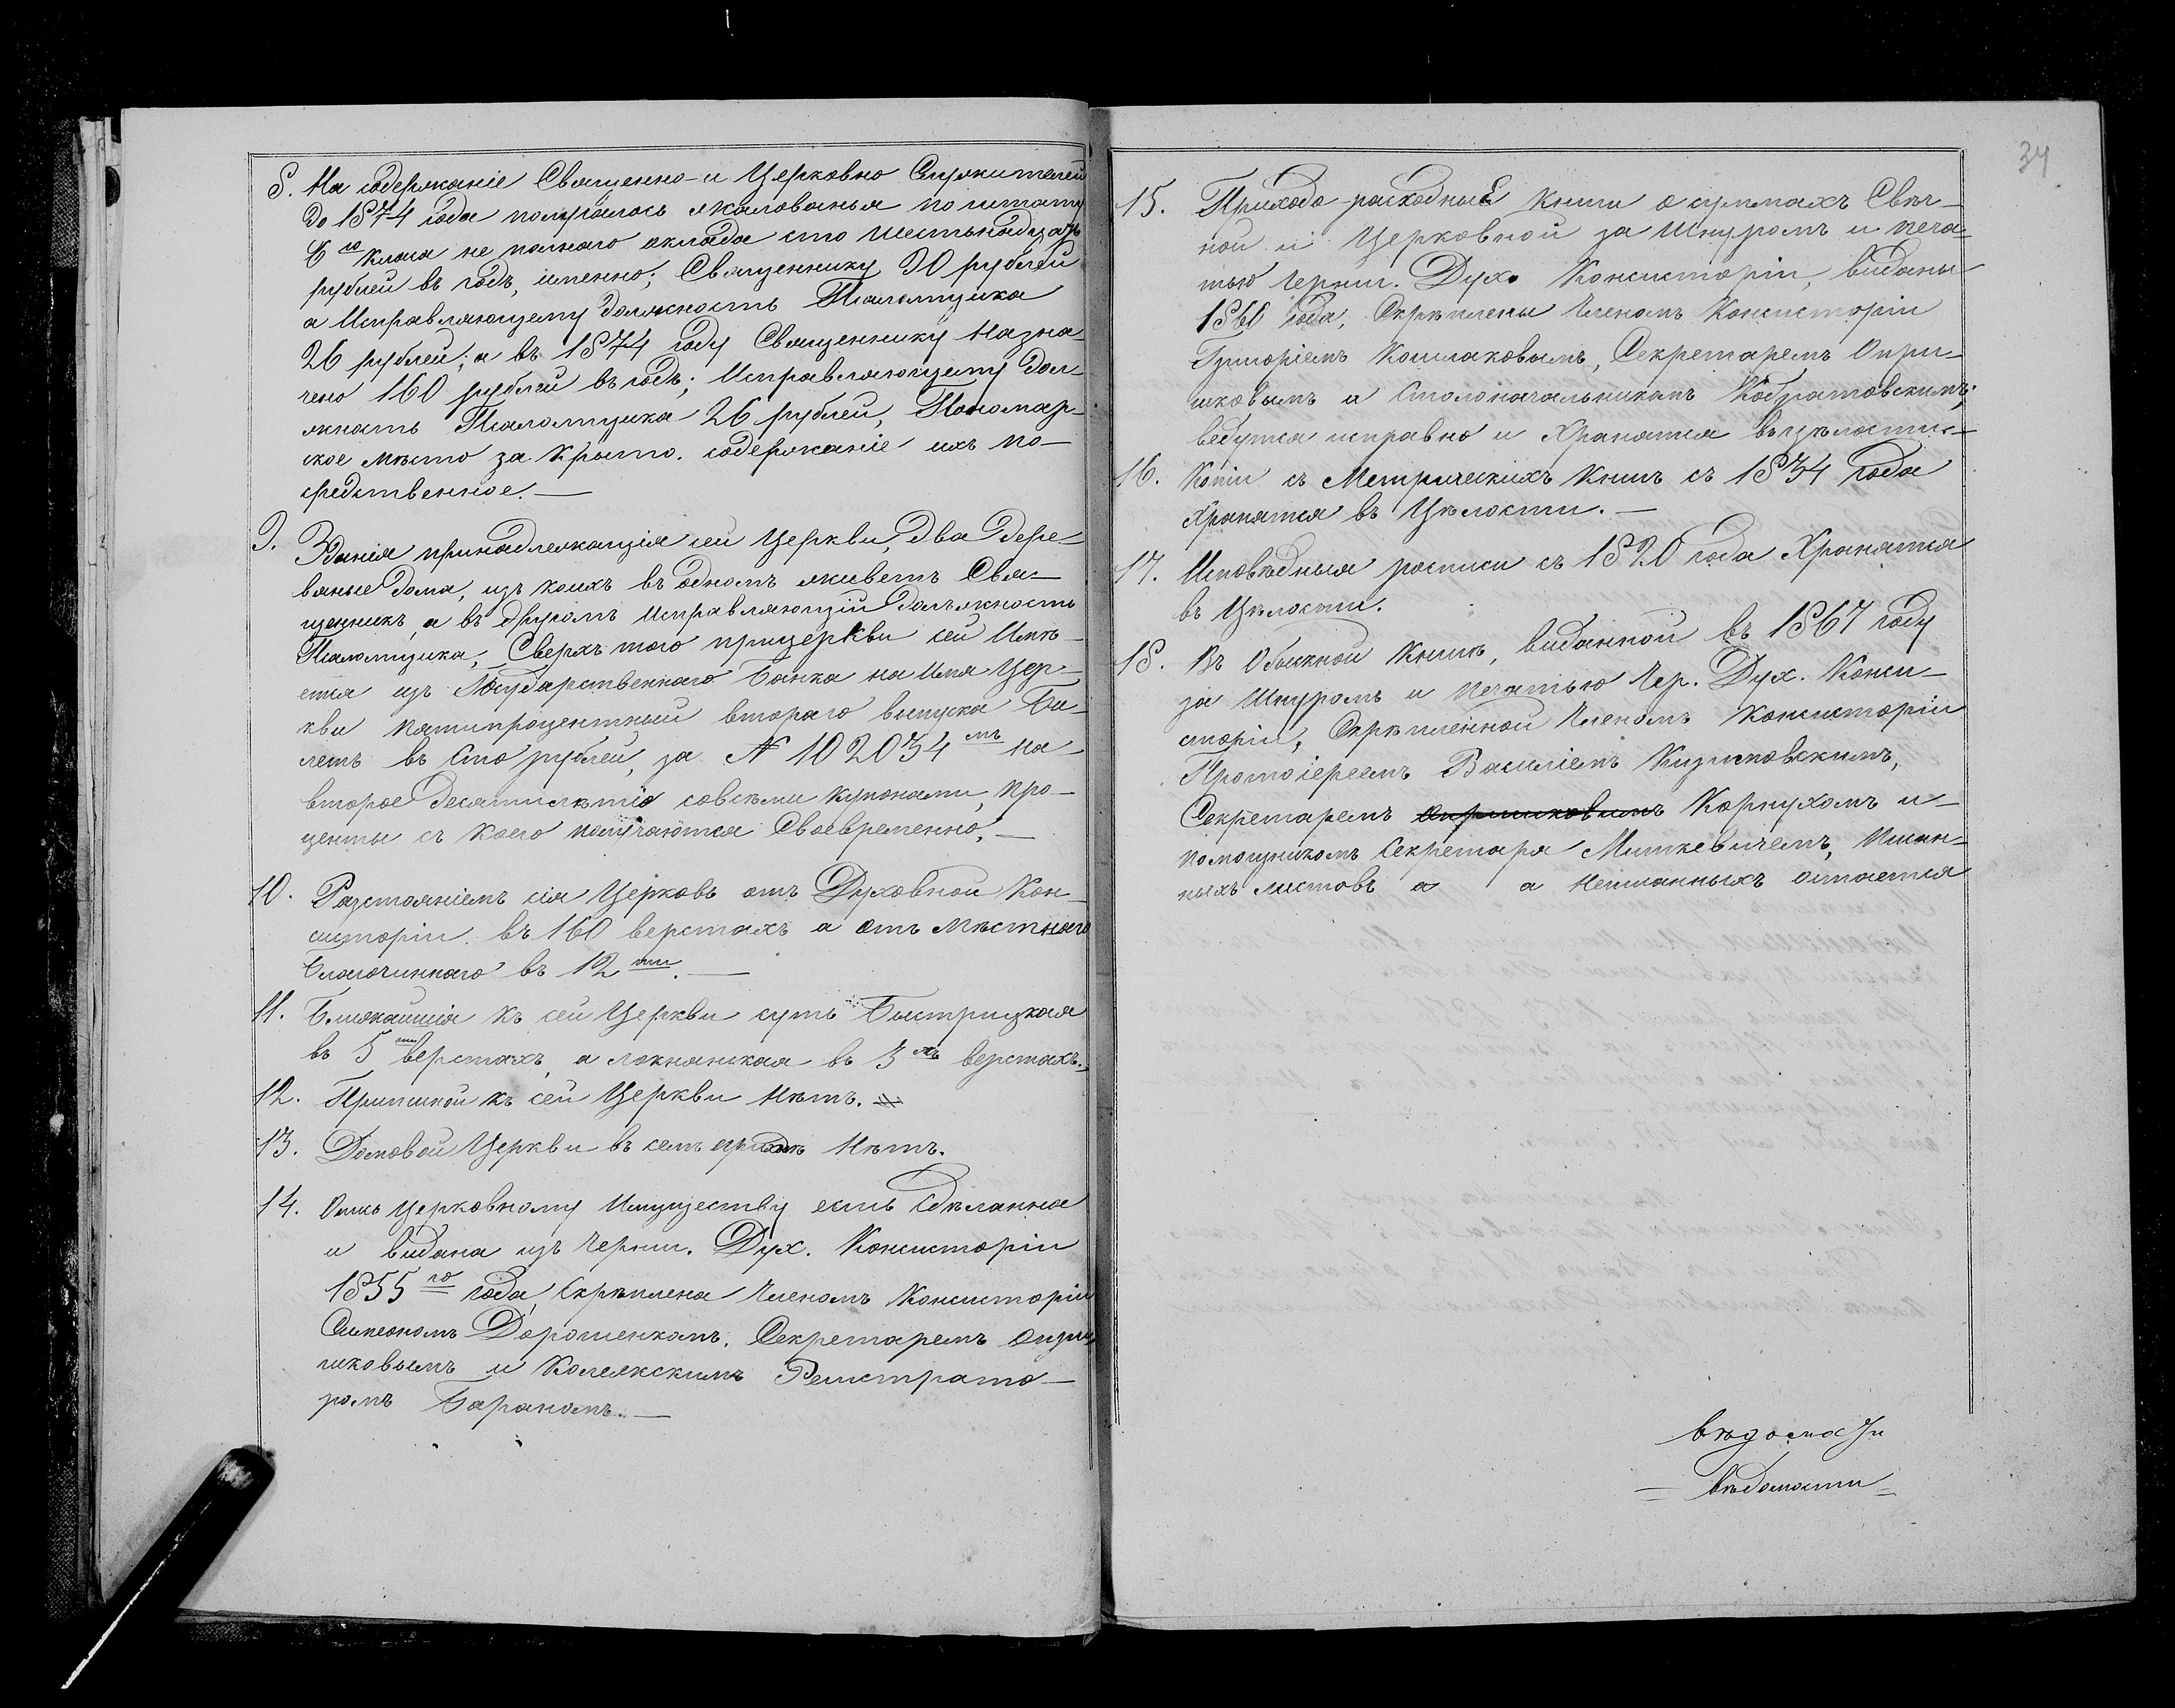 8. На содержаніе Священно-и Церковно Служителей
до 1874 года получалось жалованья по штату
6го класа не полнаго оклада сто шестьнадцать
рублей въ годъ, именно; Священнику 90 рублей
а Исправляющему должность Псаломщика
26 рублей; а въ 1874 году Священнику назна-
чено 160 рублей въ годъ; Исправляющему дол-
жность Псаломщика 26 рублей, Пономар-
ское мѣсто за Крыто. содержаніе ихъ по-
средственное. —
9. Зданія принадлежащія сей Церкви, два дере-
вяные дома, изъ коихъ въ одномъ живетъ Свя-
щенникъ, а въ другомъ Исправляющій должность
Псаломщика, Сверхъ того прицеркви сей Имѣ-
ется изъ Государственнаго Банка на Имя Цер-
кви пятипроцентный втораго выпуска Би-
летъ въ Сто рублей, за № 102034мъ на
второе десятилѣтіе совсѣми купонами, про-
центы съ коего получаются Своевременно. —
10. Разстояніемъ сія Церковь отъ Духовной Кон-
систоріи. въ 160 верстахъ а отъ мѣстнаго
Благочиннаго въ 12ти. —
11. Ближайшія къ сей Церкви суть Быстрицкая
въ 5ти верстахъ, а Локнянская въ 3хъ верстахъ.
12. Приписной къ сей Церкви Нѣтъ.
13. Домовой Церкви въ семъ приходѣ Нѣтъ.
14. Опись Церковному Имуществу есть Сдѣланна
и видана изъ Черниг. Дух. Консисторіи
1855го года, Скрѣплена Членомъ Консисторіи
Симеономъ Дорошенкомъ. Секретаремъ Опри-
шковымъ и Колежскимъ Регистрато-
ромъ Бараномъ. —
34
15. Приходо-расходныЕ Книги о суммахъ Свѣч-
ной и Церковной за Шнуромъ и печа-
тью Черниг. Дух. Консисторіи, виданы
1861 года, Скрѣплены Членомъ Консисторіи
Григоріемъ Кошлаковымъ, Секретаремъ Опри-
шковымъ и Столоначальникомъ
ведутся исправно и Хранятся въцѣлости. —
16. Копіи съ Метрическихъ Книгъ съ 1834 года
Хранятся въ Цѣлости. —
17. Исповѣдныя росписи съ 1820 года Хранятся
въ Цѣлости.
18. Въ Обыскной Книгѣ, виданной въ 1867 году
за Шнуромъ и печатью Чер. Дух. Конси-
сторіи, Скрѣпленной Членомъ Консисторіи
Протоіереемъ Василіемъ
Секретаремъ Опришковымъ Корнухомъ и-
помощникомъ Секретаря Миткевичемъ, Писан-
ныхъ листовъ а а неписанныхъ остается
вѣдомости
= вѣдомости =